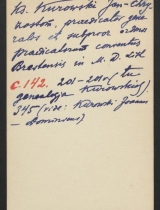 B. Kurowski Jan-Chry-
zostom, praedicator gene-
ralis et subprior ordinis
praedicatorum conventus
Brestensis in M. D. Lith
C. 142. 201-2010 (tu
genealogja Kurowskich),
345 (vide: Kurowski Joannes
- Dominicus)